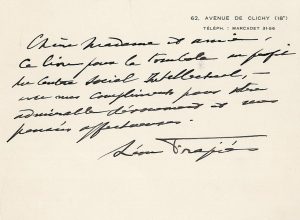 62, AVENUE DE CLICHY (18e)
TÉLÉPH. : MARCADET 31-56
Chère Madame et amie,
Ce livre pour la Tombola au profit
du Centre Social Intellectuel, —
avec mes compliments pour votre
admirable dévouement et mes
pensées affectueuses.
Léon Frapié